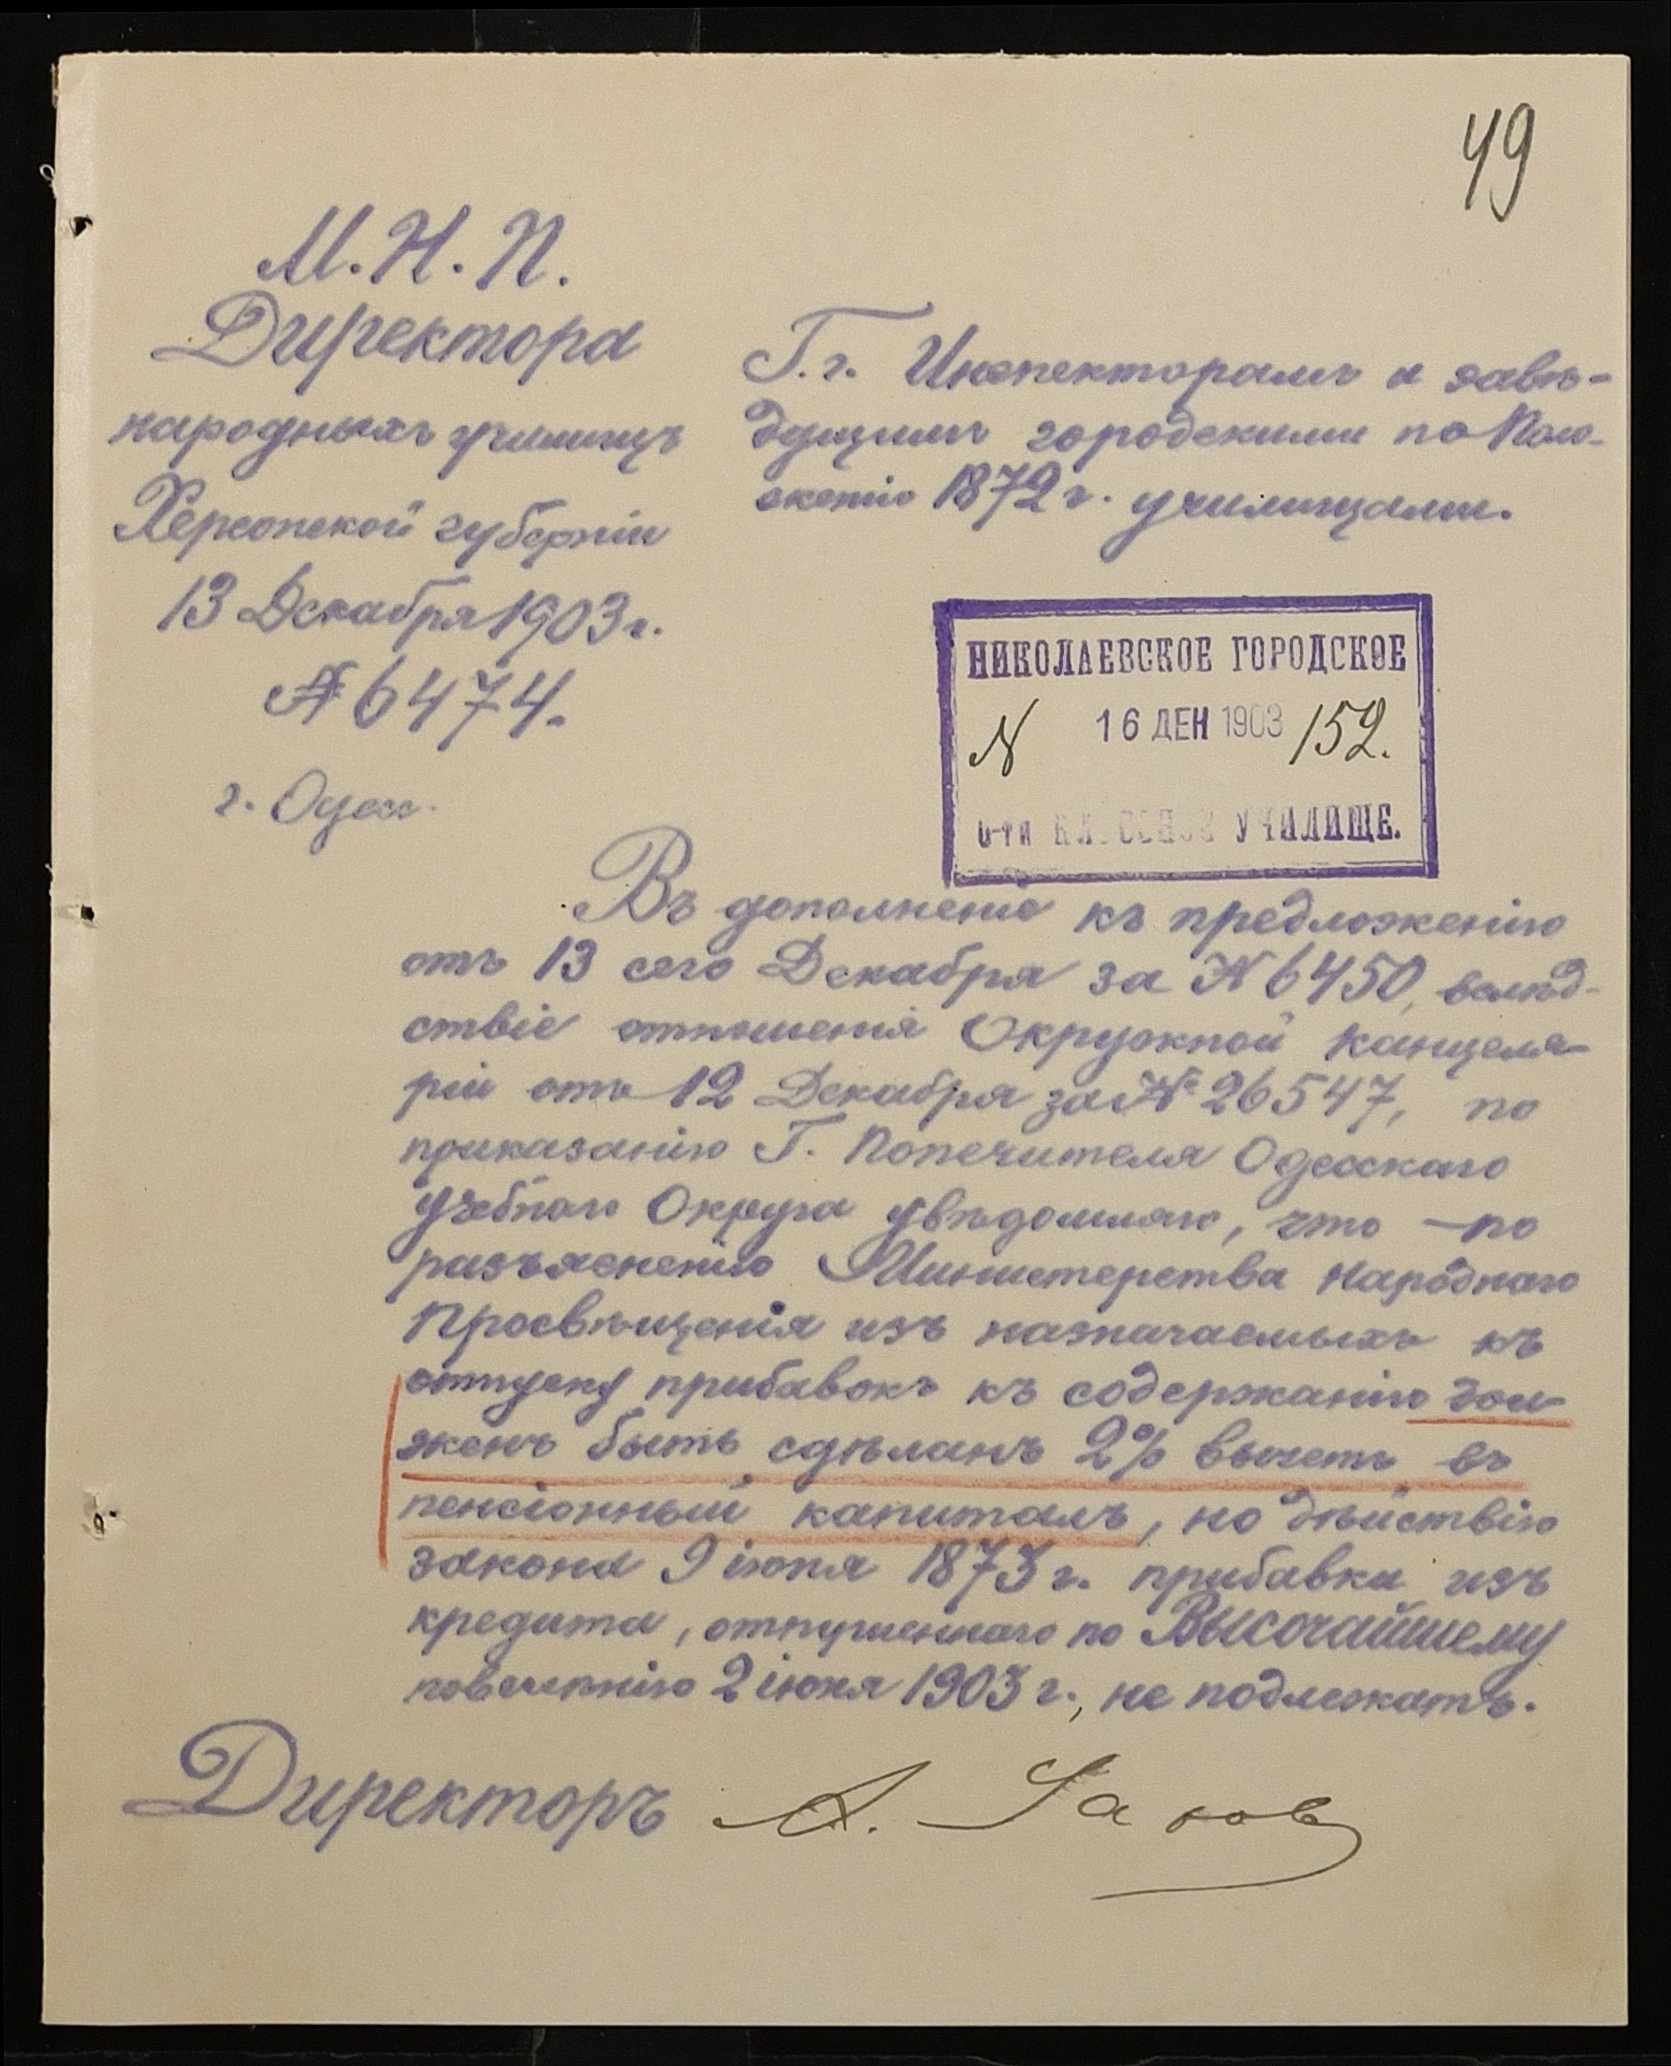 49
М. Н. П.
Директора
народныхъ училищъ
Херсонской губерніи
13 Декабря 1903 г.
№ 6474.
г. Одесс.
Г.г. Инспекторамъ и завѣ-
дущимъ городскими по Поло-
женію 1872 г. училищами.
НИКОЛАЕВСКОЕ ГОРОДСКОЕ
N 16 ДЕК 1903 152.
6-ти КЛАССНОЕ УЧИЛИЩЕ.
Въ дополненіе къ предложенію
отъ 13 сего Декабря за № 6450, вслѣд-
ствіе отношенія Окружной Канцеля-
ріи отъ 12 Декабря за № 26547, по
приказанію Г. Попечителя Одесскаго
Учебнаго Округа увѣдомляю, что – по
разъясненію Министерства Народнаго
Просвѣщенія изъ назначаемыхъ къ
отпуску прибавокъ къ содержанію дол-
женъ быть сдѣланъ 2% вычетъ въ
пенсіонный капиталъ, но дѣйствію
закона 9 іюня 1873 г. прибавки изъ
кредита, отпущеннаго по Высочайшему
повелѣнію 2 іюня 1903 г., не подлежатъ.
Директоръ А.